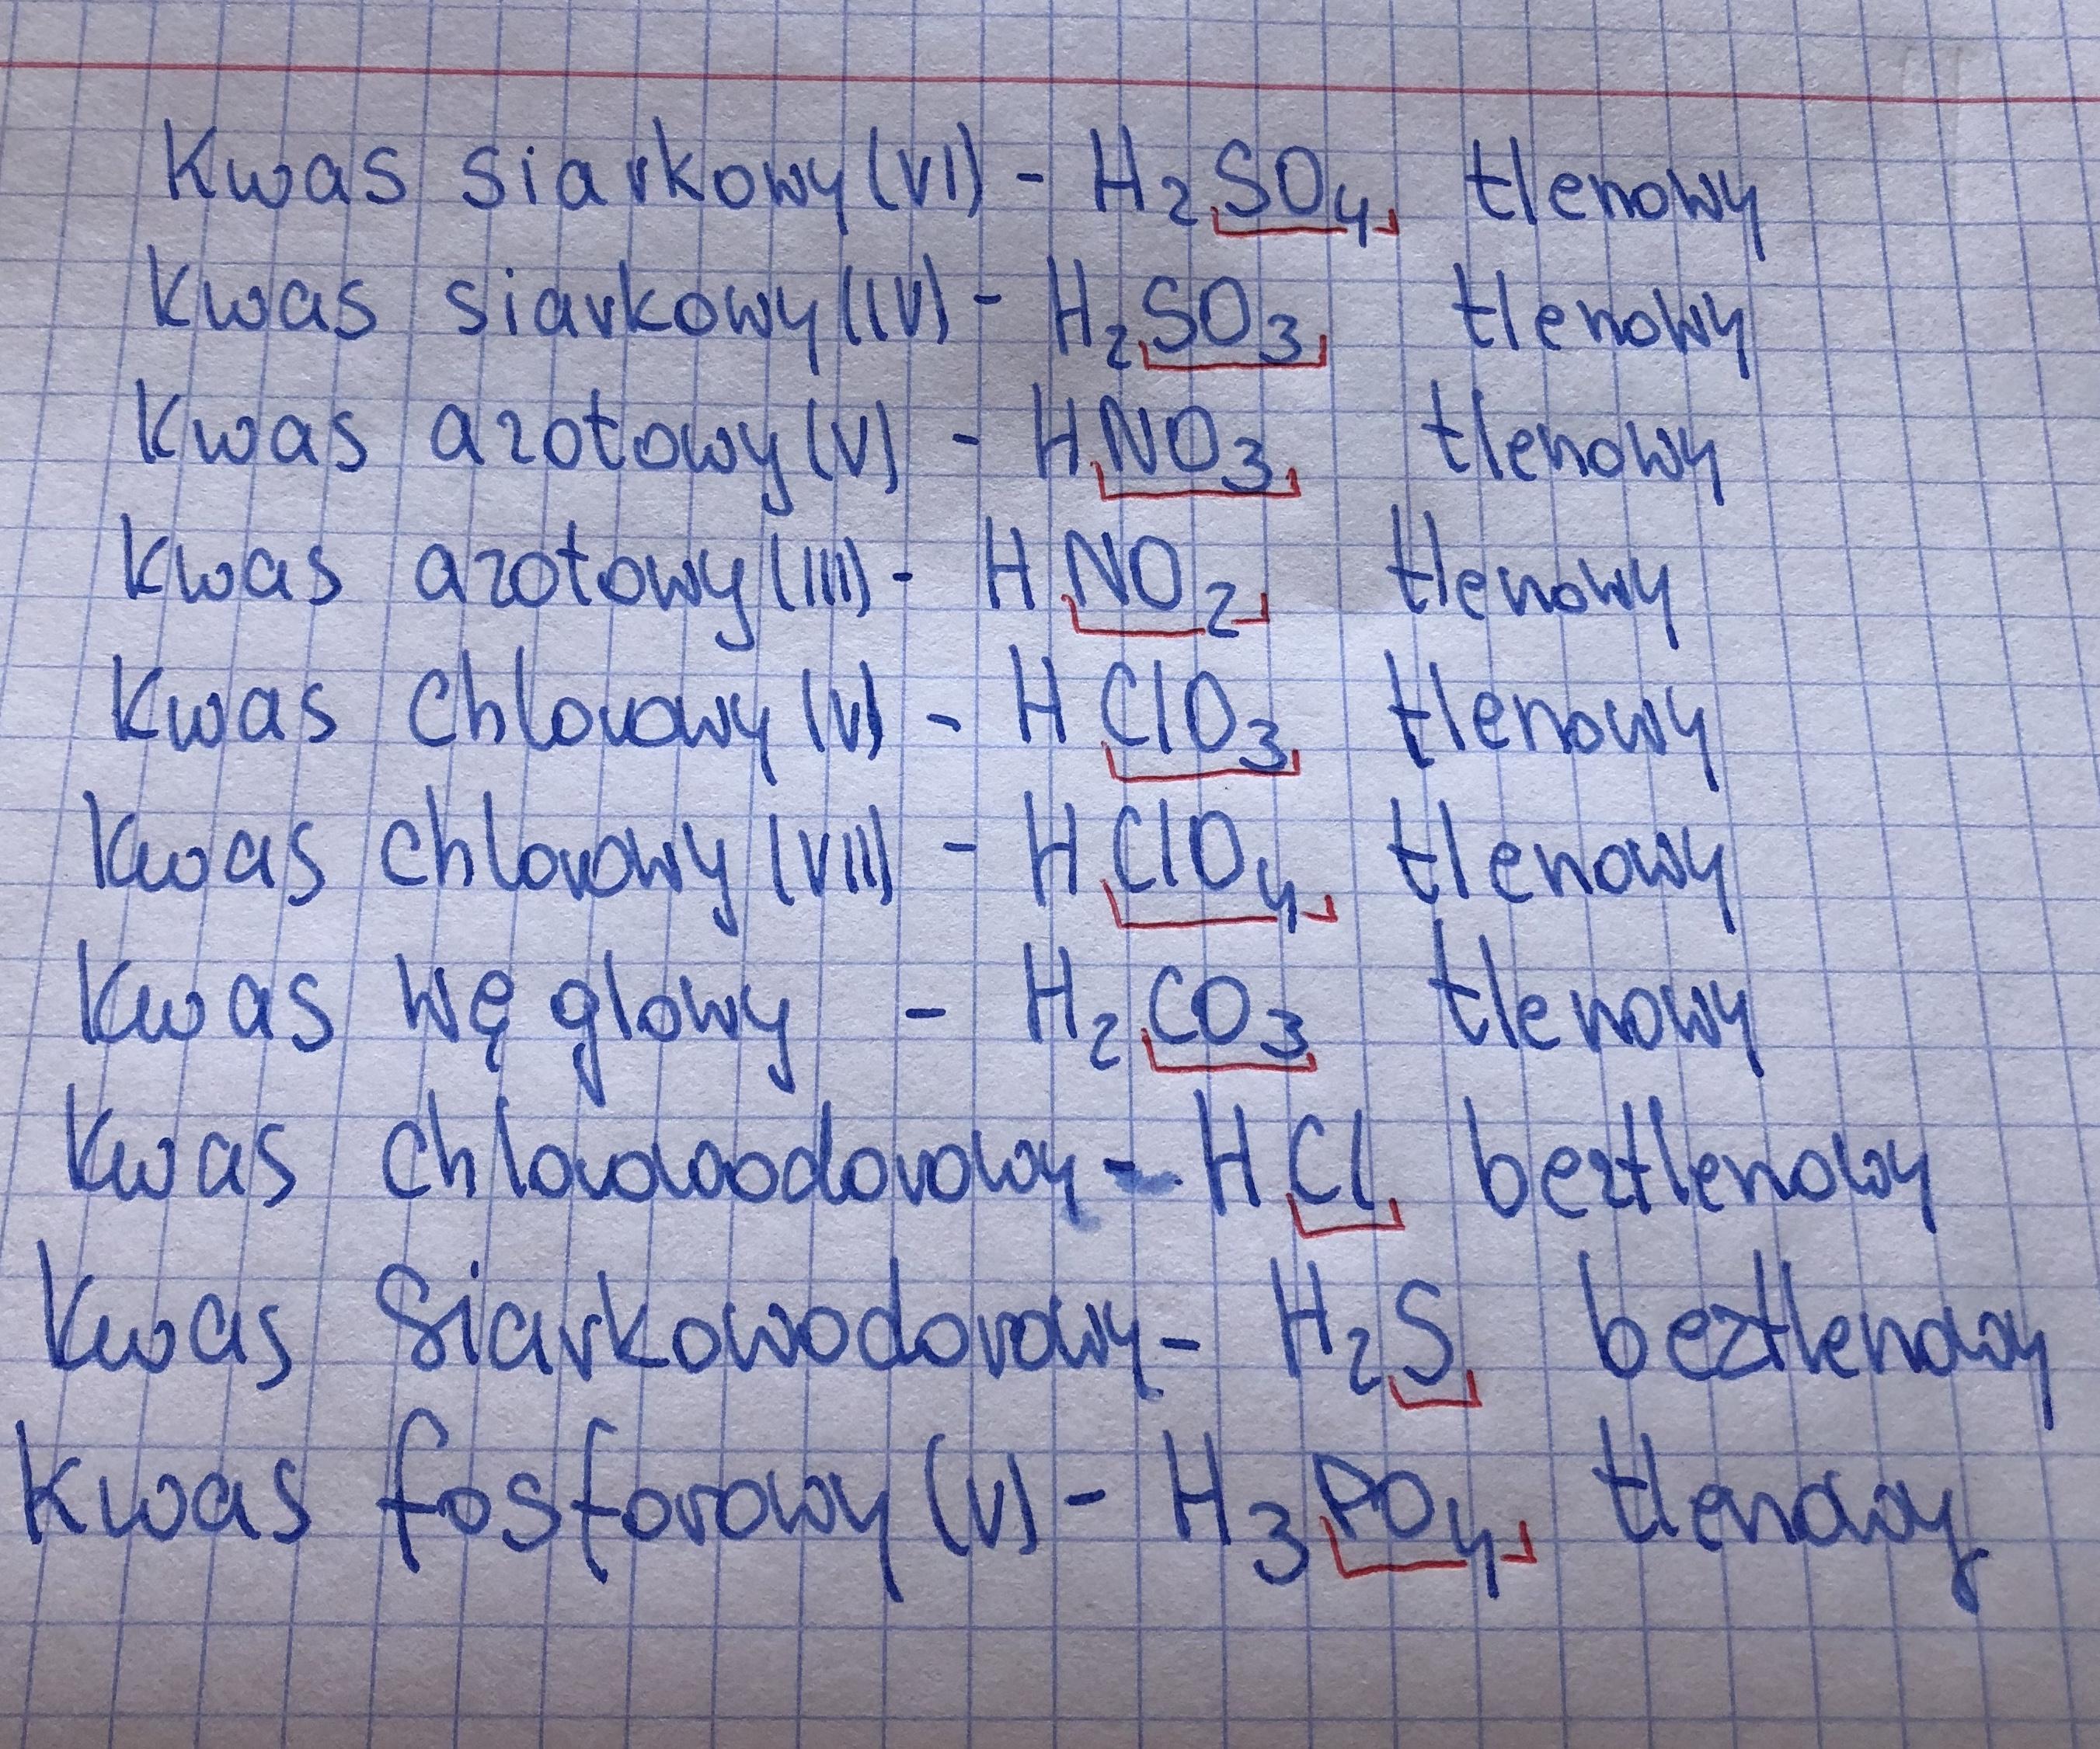 Kwas siarkowy (VI) - H₂SO₄ tlenowy
Kwas siarkowy (IV) - H₂SO₃ tlenowy
Kwas azotowy (V) - HNO₃ tlenowy
Kwas azotowy (III) - HNO₂ tlenowy
Kwas Chlorowy (V) - HClO₃ tlenowy
Kwas chlorowy (VII) - HClO₄ tlenowy
Kwas węglowy - H₂CO₃ tlenowy
Kwas chlorowodorowy - HCl beztlenowy
Kwas Siarkowodorowy - H₂S beztlenowy
Kwas fosforowy (V) - H₃PO₄ tlenowy